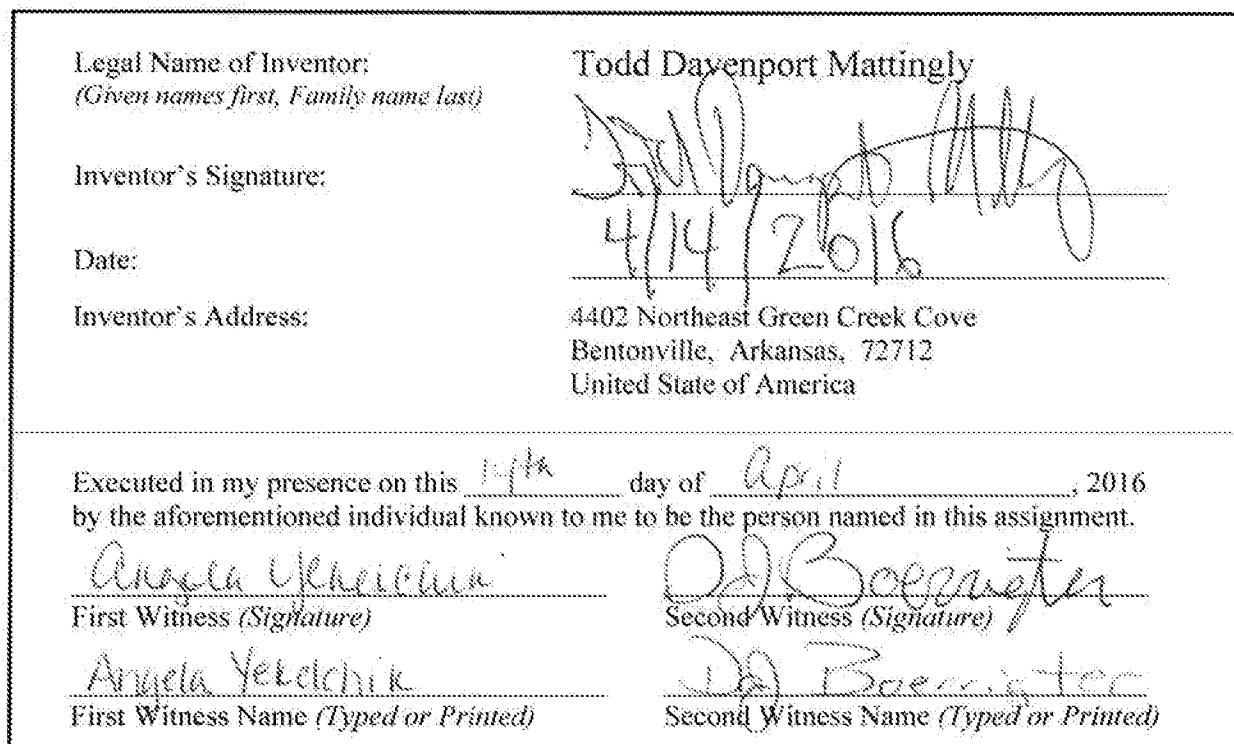 Legal Name of Inventor: Todd Davenport Mattingly
(Given names first, Family name last)
Inventor's Signature:
Date: 4/14/2016
Inventor's Address: 4402 Northeast Green Creek Cove
Bentonville, Arkansas, 72712
United State of America
Executed in my presence on this 14th day of April, 2016
by the aforementioned individual known to me to be the person named in this assignment.
Angela Yekelchik
First Witness (Signature) Second Witness (Signature)
Angela Yekelchik
First Witness Name (Typed or Printed) Second Witness Name (Typed or Printed)